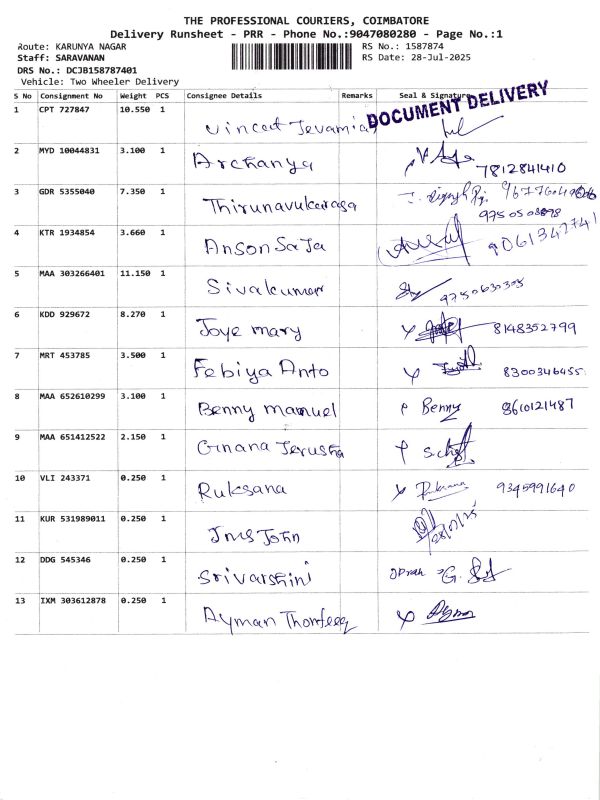 THE PROFESSIONAL COURIERS, COIMBATORE
Delivery Runsheet - PRR - Phone No.:9047080280 - Page No.:1
Route: KARUNYA NAGAR RS No.: 1587874
Staff: SARAVANAN RS Date: 28-Jul-2025
DRS No.: DCJB158787401
Vehicle: Two Wheeler Delivery
S No Consignment No Weight PCS Consignee Details Remarks Seal & Signature
DOCUMENT DELIVERY
1 CPT 727847 10.550 1 Vincent Jevamias
2 MYD 10044831 3.100 1 Archanya 7812841410
3 GDR 5355040 7.350 1 Thirunavukarasa
9750503898
4 KTR 1934854 3.660 1 Anson Saja 9061342741
5 MAA 303266401 11.150 1 Sivakumar 9750630305
6 KDD 929672 8.270 1 Joye mary 8148352799
7 MRT 453785 3.500 1 Febiya Anto 8300346455
8 MAA 652610299 3.100 1 Benny manuel Benny 8610121487
9 MAA 651412522 2.150 1 Gnana Jerusha
10 VLI 243371 0.250 1 Ruksana Ruksana 9345991640
11 KUR 531989011 0.250 1 Jms John 28/07/25
12 DDG 545346 0.250 1 Srivarshini
13 IXM 303612878 0.250 1 Ayman Thonfeeq